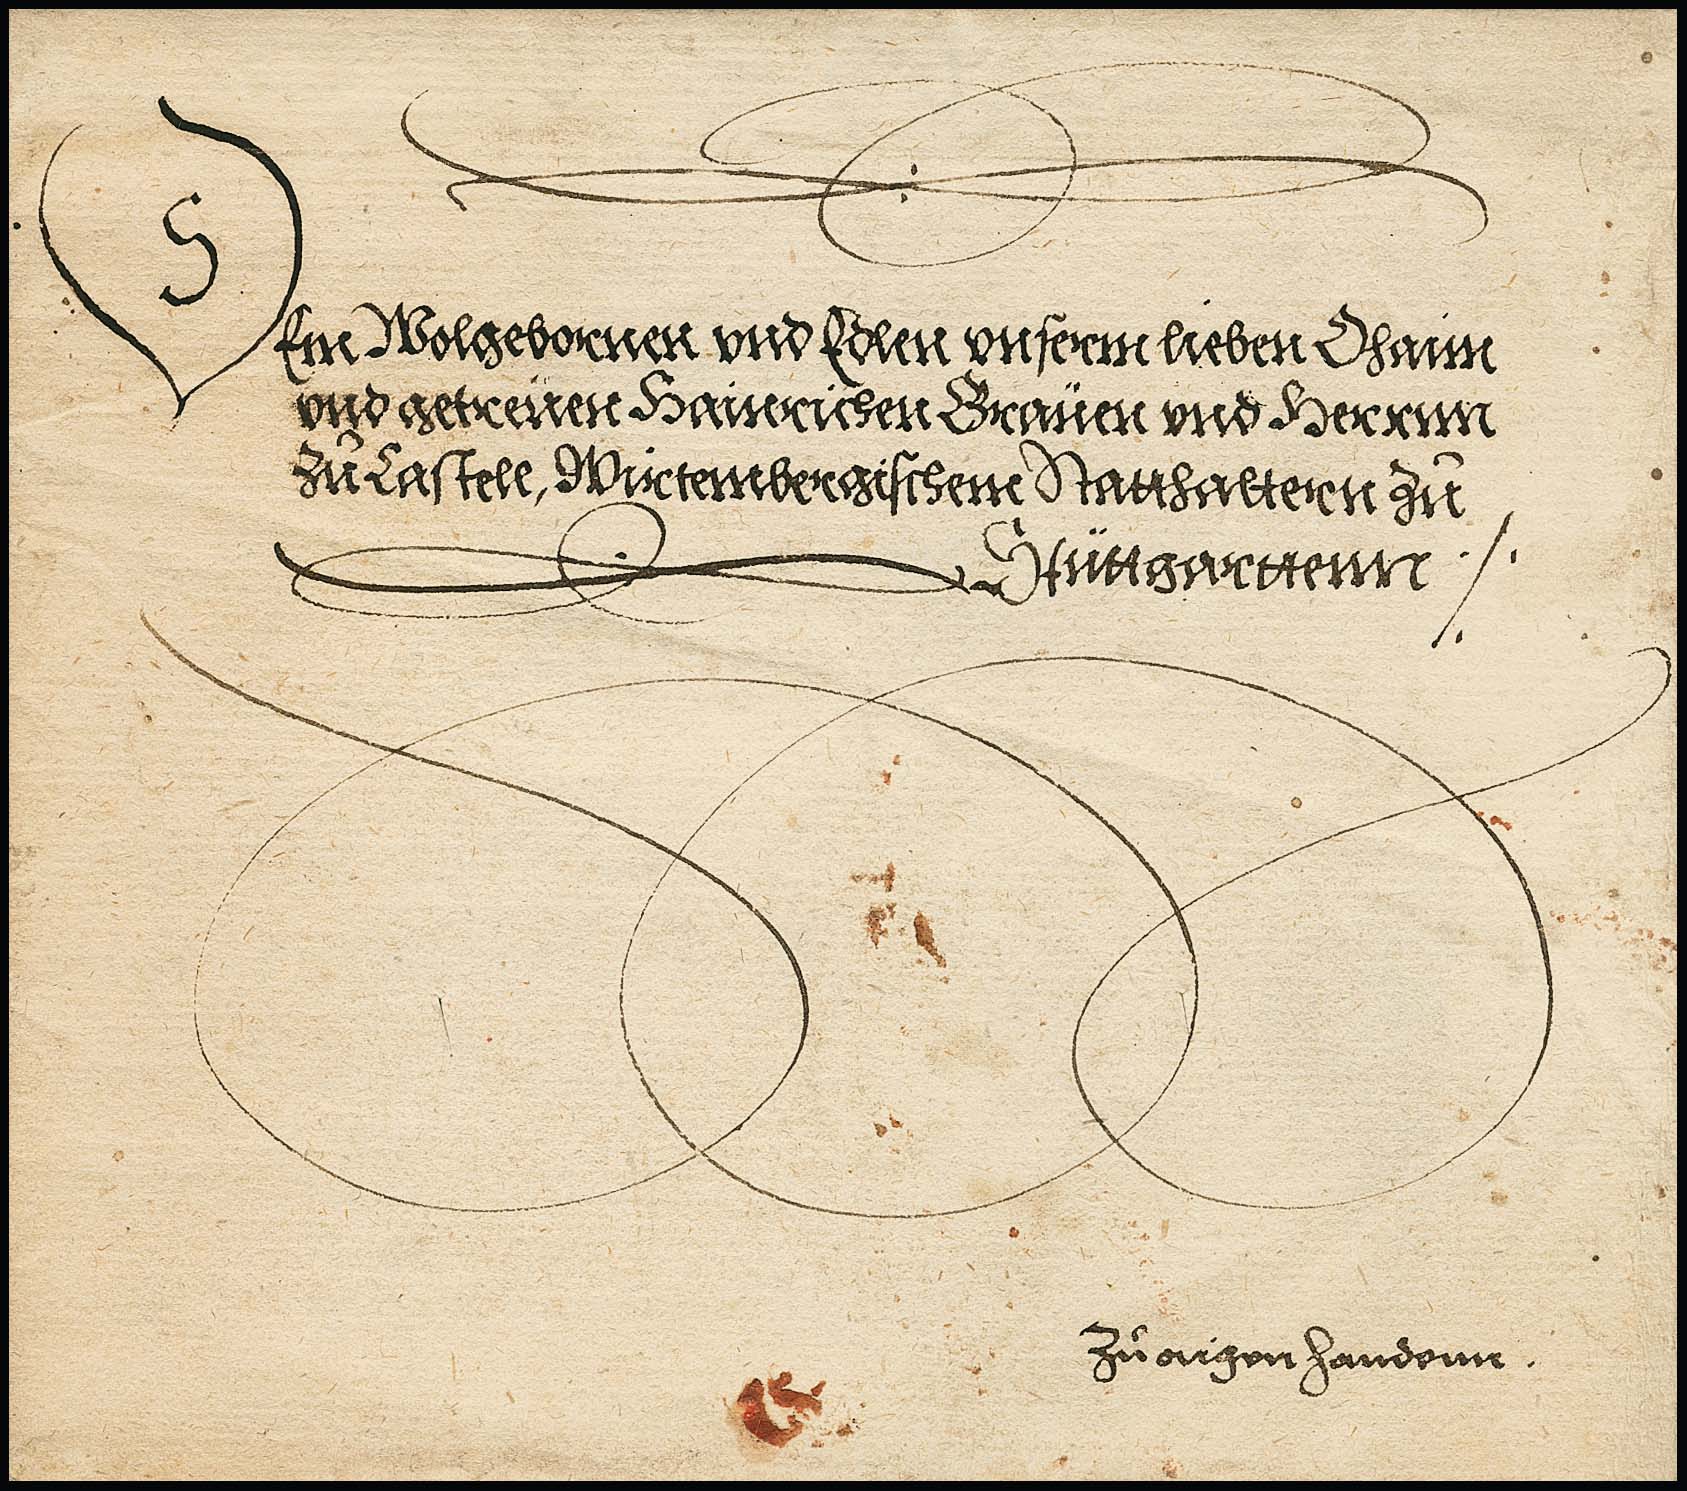 Dem Wolgebornen vnd Edlen vnserm lieben Ohaim
vnd getreüen Hainrichen Grauen vnd Herrnn
zů Castell, Wirtembergischem Statthaltern zů
Stůttgarttenn ./.
Zů aigen handenn .